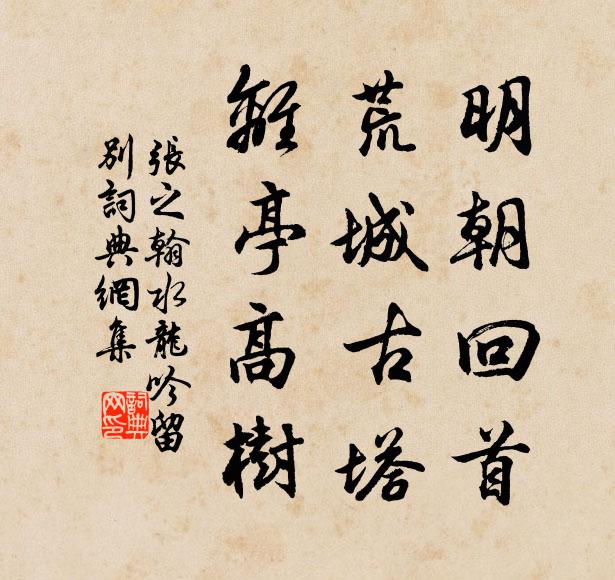 明朝回首
荒城古塔
離亭高樹
張之翰水龍吟留
別詞典網集
詞典
网印